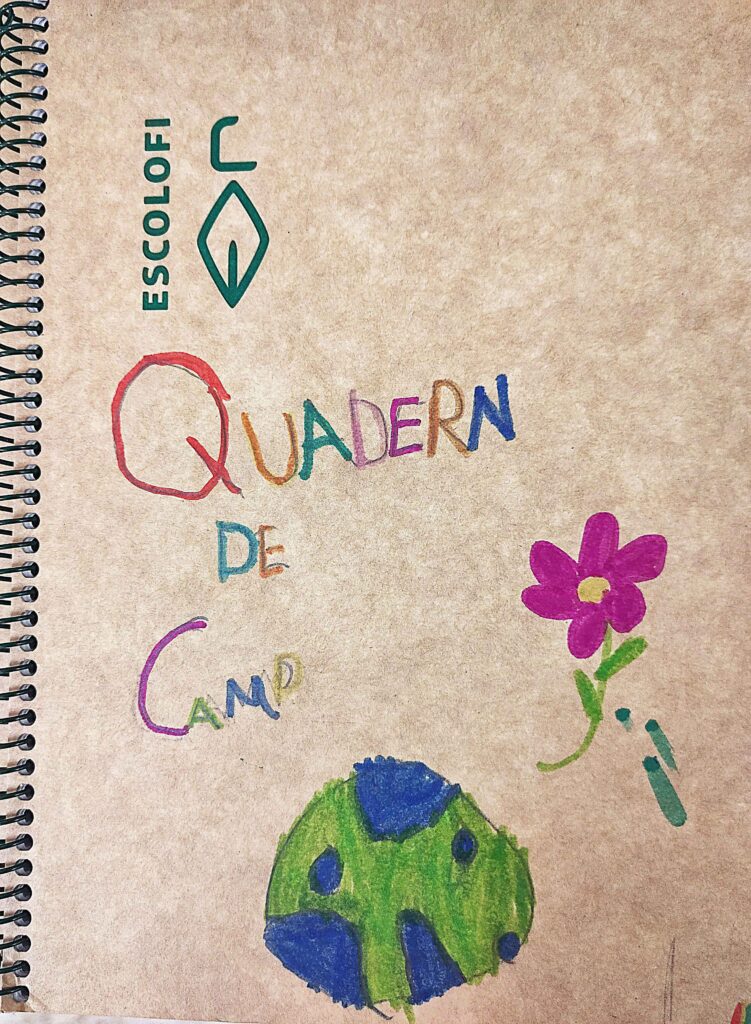 ESCOLOFI
QUADERN
DE
CAMP